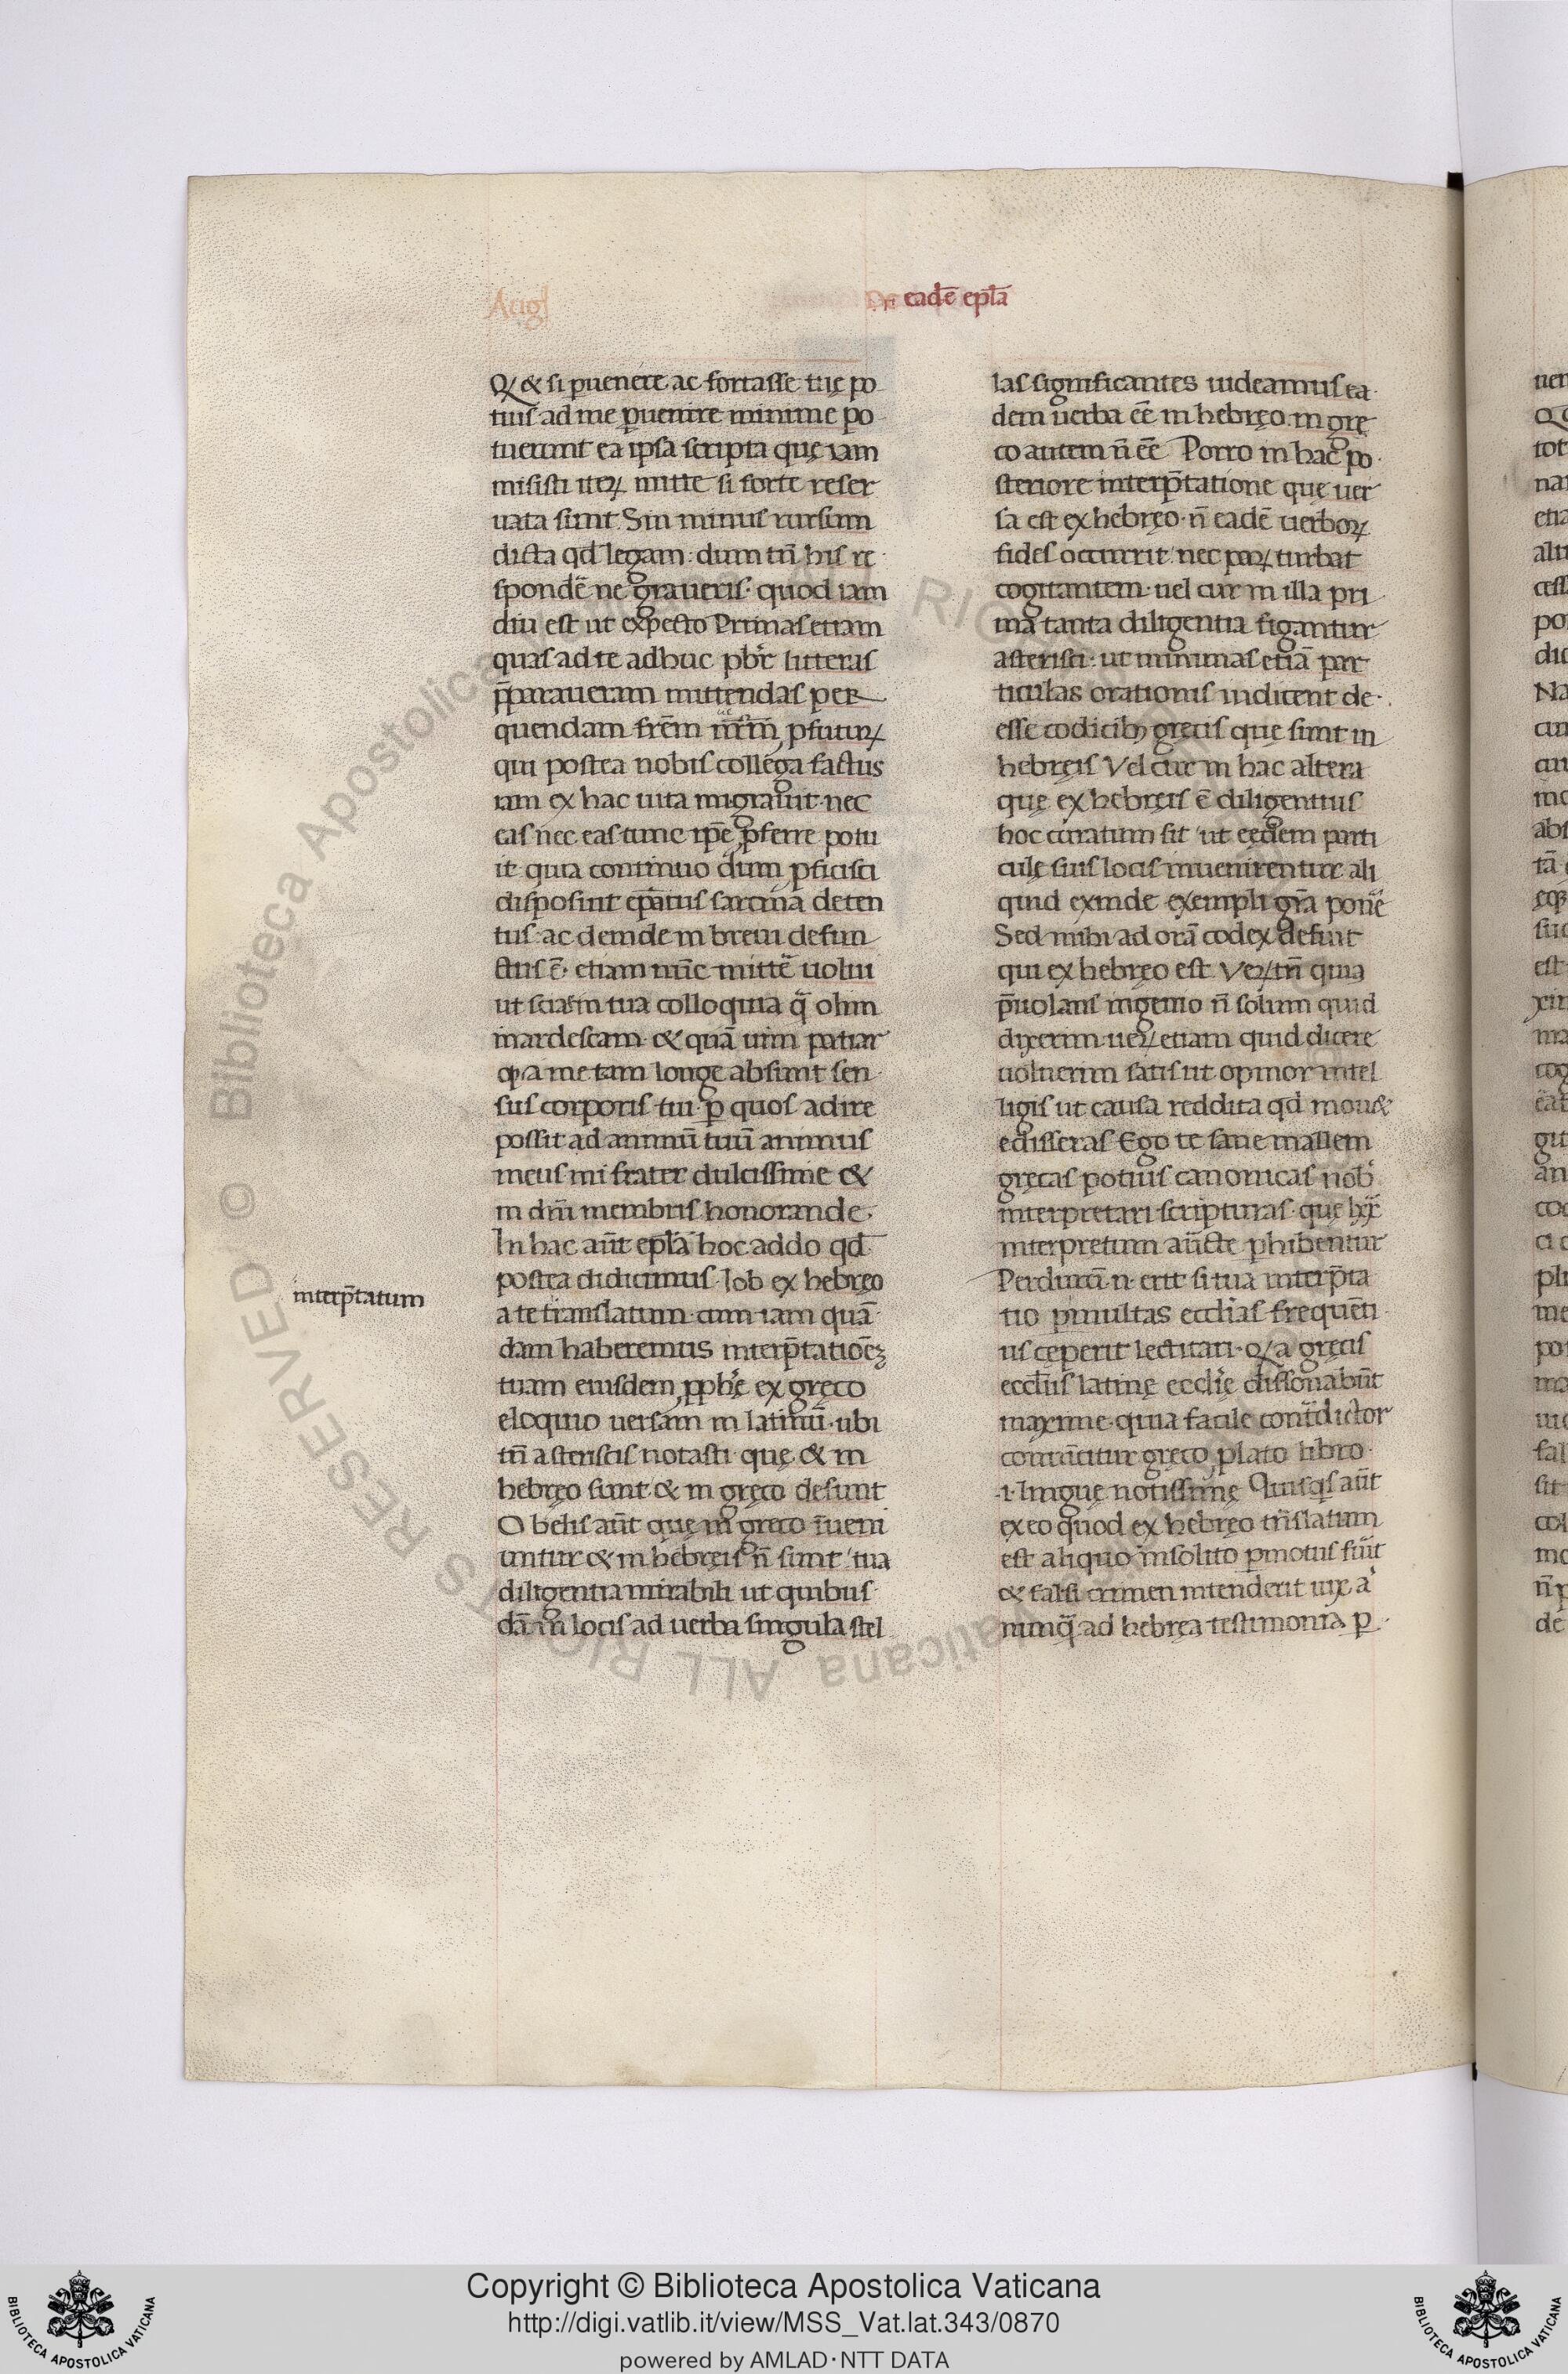 Aug
eadē epl̄a
Qꝝ & si puenere ac fortasse tuę po
tius ad me ꝑuenire minime po
tuerunt ea ipsa scripta quę iam
misisti iteꝝ mitte si forte reser
uata sunt. Sin minus rursum
dicta qd̄ legam. dum tn̄ his re
spondē ne graueris. quod iam
diu est ut expecto Primas etiam
quas ad te adhuc pbr̄ litteras
p̄paraueram mittendas per
quendam frēm nrm̄, ꝓfuturꝝ
qui postea nobis collega factus
iam ex hac uita migrauit. nec
eas nec eas tunc ipē ꝓferre potu
it. quia continuo dum ꝓficisci
disposuit ep̄atus sarcina deten
tus. ac deinde in breui defun
ctus ē. etiam nūc mittē uolui
ut scias in tua colloquia q̄ olim
inardescam. & quā uim patiar
qꝫ a me tam longe absunt sen
sus corporis tui. ꝑ quos adire
possit ad animū tuū animus
meus mi frater dulcissime &
in dn̄i membris honorande.
In hac aūt epl̄a hoc addo qd̄
postea didicimus. Iob ex hebręo
interp̄tatum
a te translatum. cum iam quā
dam haberemus interp̄tationē
tuam eiusdem ꝓphę ex gręco
eloquio uersam in latinū. ubi
tn̄ asteriscis notasti. quę & in
hebręo sunt. & in gręco desunt
Obelis aūt quę in gręco īueni
untur & in hebręis n̄ sunt tua
diligentia mirabili ut quibus
dā in locis ad uerba singula stel
las significantes uideamus ea
dem uerba eē in hebręo. in grę
co autem n̄ eē Porro in hac po
steriore interp̄tatione quę uer
sa est ex hebręo. n̄ eadē uerboꝝ
fides occurrit. nec paꝝ turbat
cogitantem. uel cur in illa pri
ma tanta diligentia figantur
asterisci. ut minimas etiā par
ticulas orationis indicent de
esse codicibꝫ gręcis quę sunt in
hebręis Vel cur in hac altera
quę ex hebręis ē diligentius
hoc curatum sit ut eędem parti
culę suis locis inuenirentur. ali
quid exinde exempli gr̄a ponē
Sed mihi ad orā codex defuit
qui ex hebręo est. Veꝝtn̄ quia
p̄uolans ingenio n̄ solum quid
dixerim. ueꝝ etiam quid dicere
uoluerim satis ut opinor intel
ligis ut causa reddita qd̄ mou&
edisseras Ego te sane mallem
gręcas potius canonicas nob̄
interpretari scripturas. quę lxx
interpretum aūcte ꝑhibentur
Perdurū n. erit si tua interp̄ta
tio ꝑ multas eccl̄ias frequēti
us ceperit lectitari. qꝫ a gręcis
eccl̄iis latinę eccl̄ię dissonabūt
maxime. quia facile contradictor
conuīcitur gręco ꝓlato libro
.i. linguę notissimę Quisqs aūt
ex eo quod ex hebręo trn̄slatum
est aliquo insolito ꝑmotus fuīt
& falsi crimen intenderit uix a
nunq̄ ad hebręa testimonia ꝑ
Copyright © Biblioteca Apostolica Vaticana
http://digi.vatlib.it/view/MSS_Vat.lat.343/0870
powered by AMLAD·NTT DATA
BIBLIOTECA APOSTOLICA VATICANA
BIBLIOTECA APOSTOLICA VATICANA